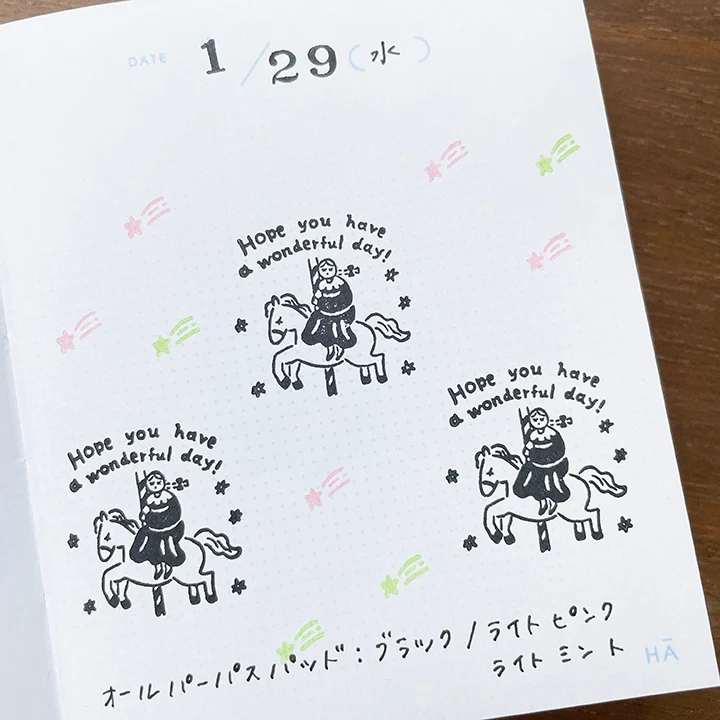 DATE 1/29(水)
Hope you have
a wonderful day!
Hope you have
a wonderful day!
Hope you have
a wonderful day!
オールパーパスパッド:ブラック/ライトピンク
ライトミント
HĀ